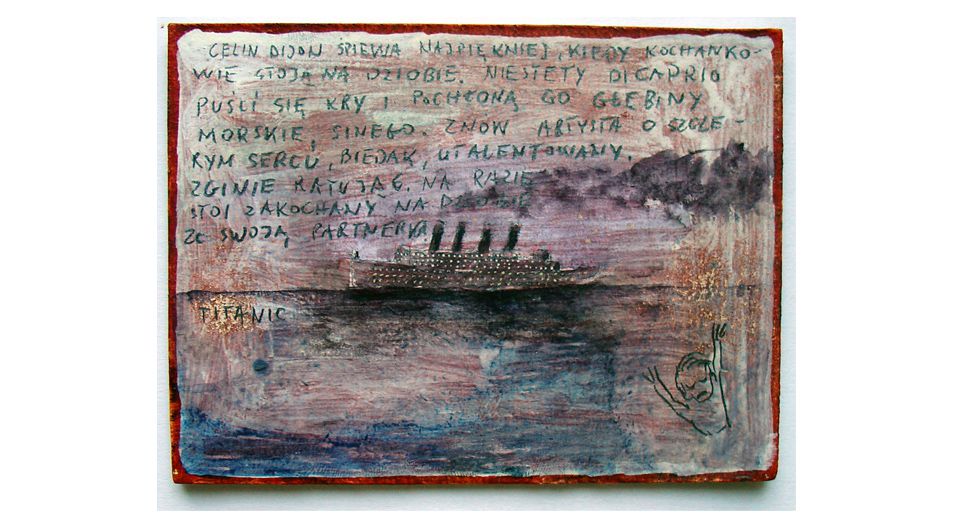 CELIN DIJON ŚPIEWA NAJPIĘKNIEJ, KIEDY KOCHANKO-
WIE STOJĄ NA DZIOBIE. NIESTETY DICAPRIO
PUŚCI SIĘ KRY I POCHŁONĄ GO GŁĘBINY
MORSKIE, SINEGO. ZNÓW ARTYSTA O SZCZE-
RYM SERCU, BIEDAK, UTALENTOWANY.
ZGINIE RATUJĄC. NA RAZIE
STOI ZAKOCHANY NA DZIOBIE
ZE SWOJĄ PARTNERKĄ
TITANIC